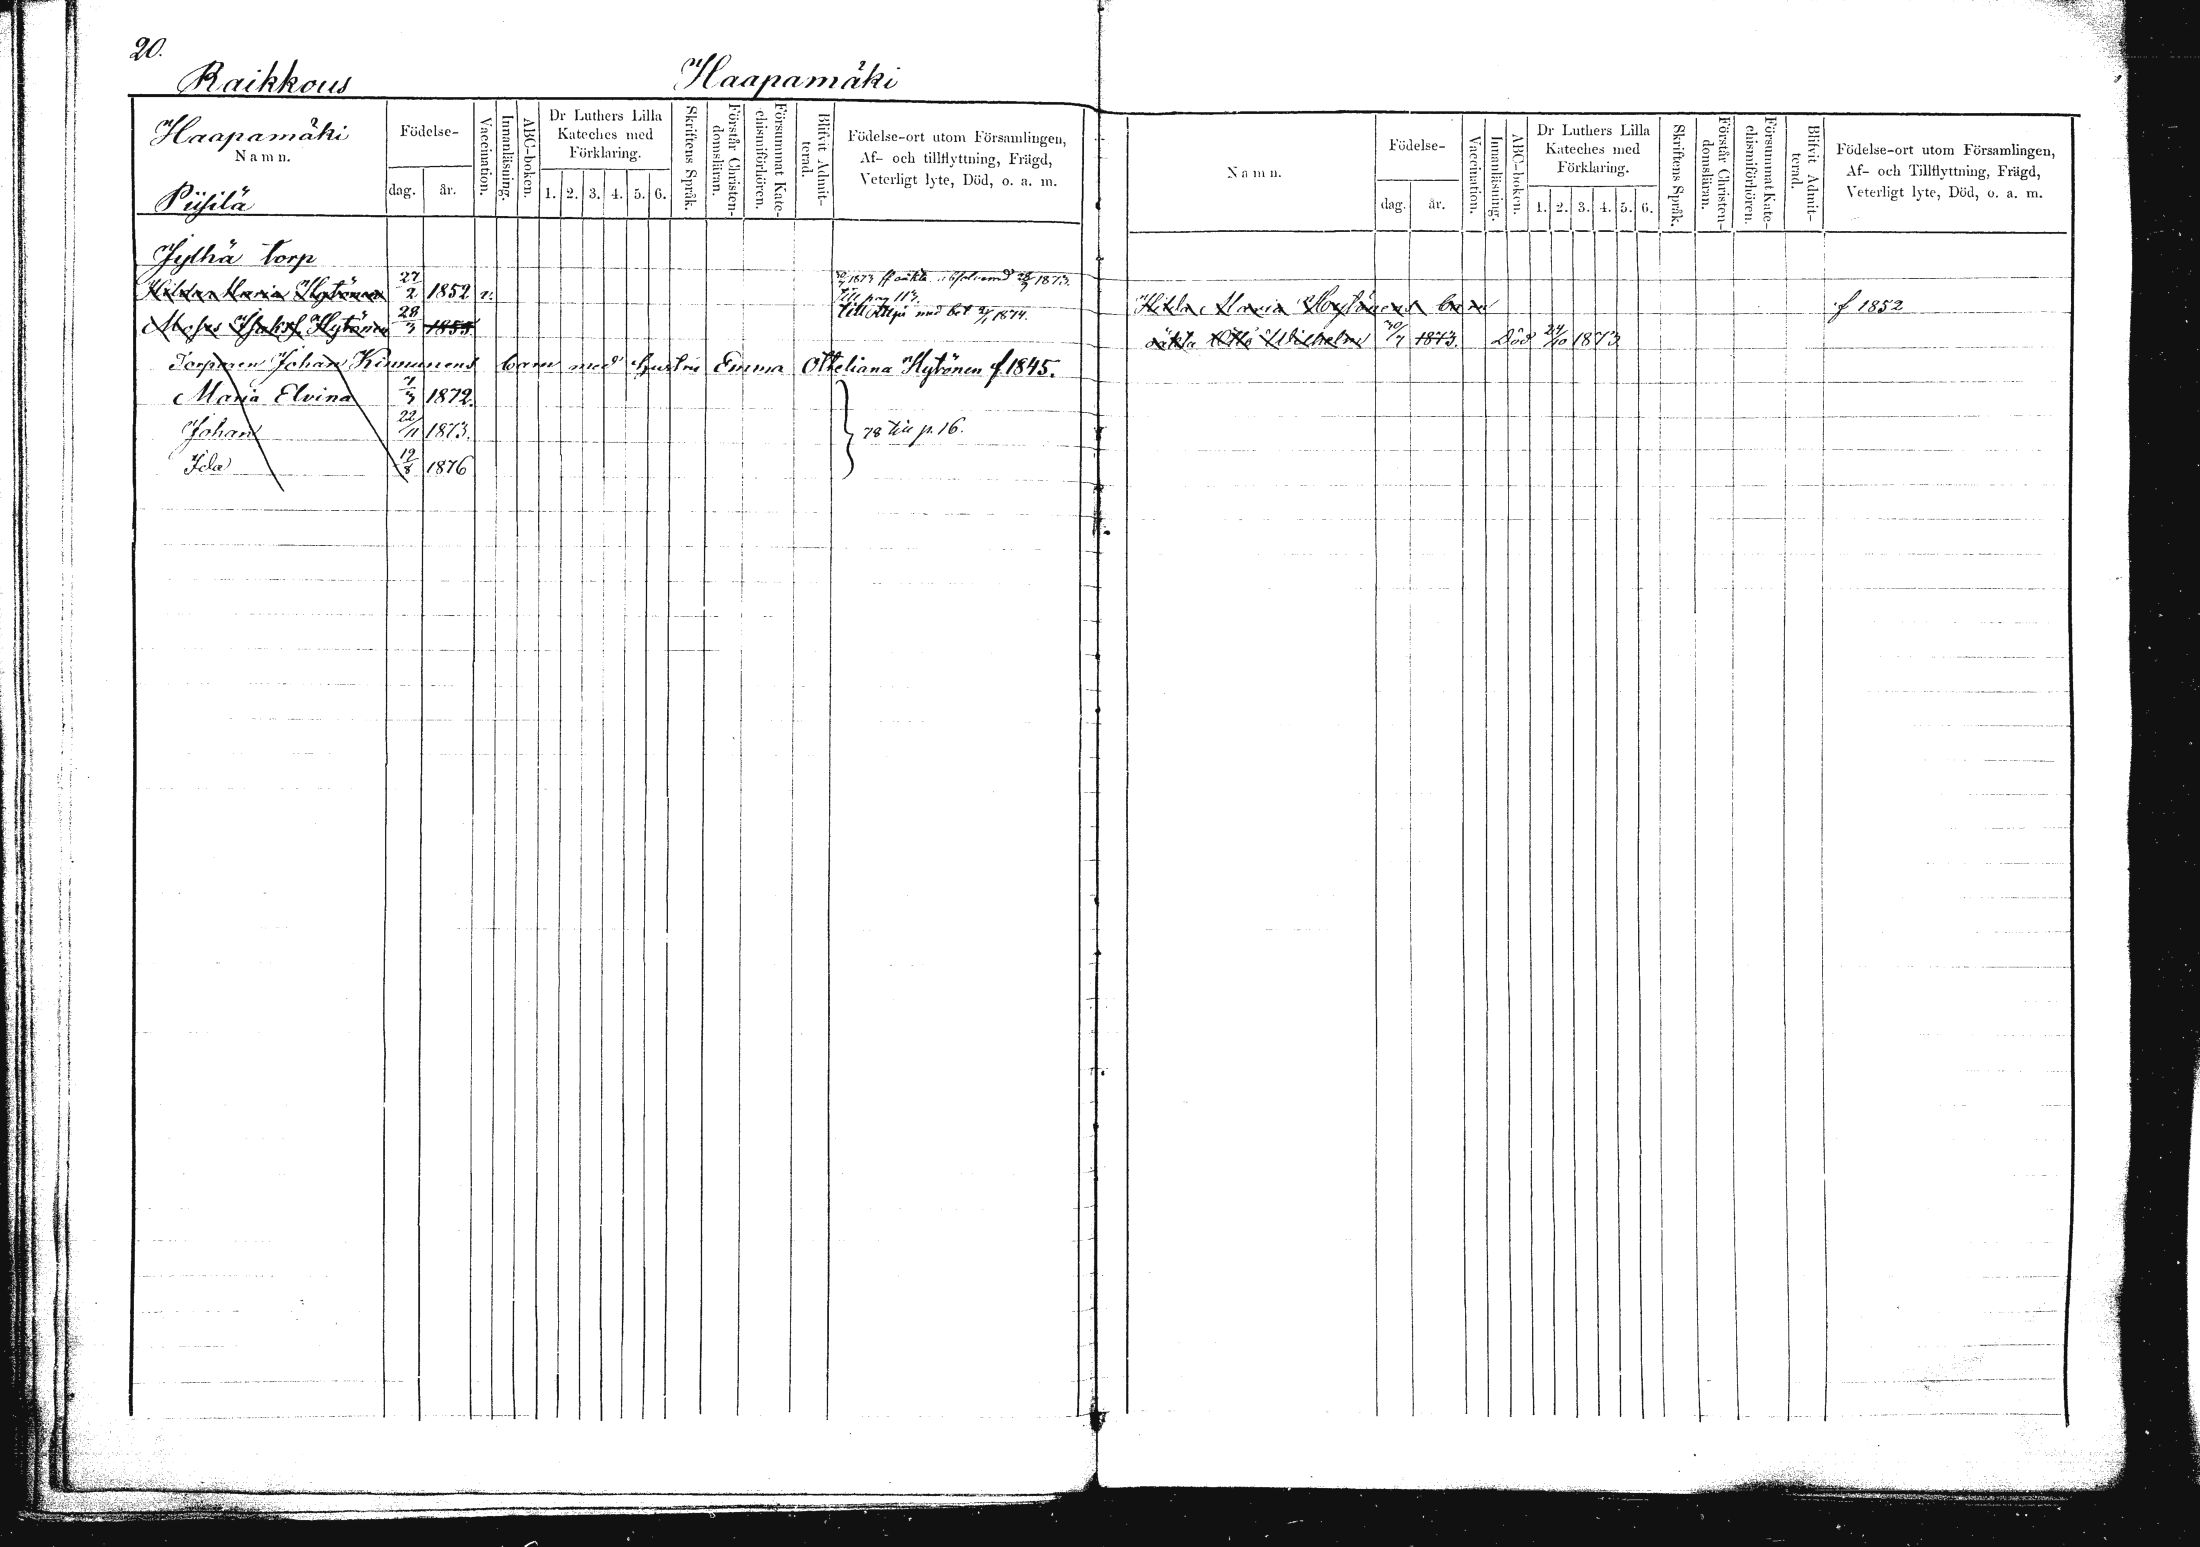 20.
Raikkous Haapamäki
Haapamäki
Namn.
Födelse-
dag. år.
Vaccination.
Innanläsning.
ABC-boken.
Dr Luthers Lilla
Kateches med
Förklaring.
1. 2. 3. 4. 5. 6.
Skriftens Språk.
Förstår Christen-
domsläran.
Försummat Kate-
chismiförhören.
Blifvit Admit-
terad.
Födelse-ort utom Församlingen,
Af- och tillflyttning, Frägd,
Veterligt lyte, Död, o. a. m.
Piisilä
Jylhä torp
Hilda Maria Hytönen 27/2 1852 v. 1873 1873.
till pag 113.
Moses Hytönen 28/3 1855 till med bet 1874.
Torparen Johan Kinnunens barn med hustru Emma Otteliana Hytönen f. 1845.
Maria Elvina 7/3 1872.
Johan 22/11 1873. 78 till p. 16.
Ida 19/8 1876
Namn.
Födelse-
dag. år.
Vaccination.
Innanläsning.
ABC-boken.
Dr Luthers Lilla
Kateches med
Förklaring.
1. 2. 3. 4. 5. 6.
Skriftens Språk.
Förstår Christen-
domsläran.
Försummat Kate-
chismiförhören.
Blifvit Admit-
terad.
Födelse-ort utom Församlingen,
Af- och Tillflyttning, Frägd,
Veterligt lyte, Död, o. a. m.
Hilda Maria Hytönens barn f 1852
oäkta Otto Wilhelm 30/7 1873. Död 24/10 1873